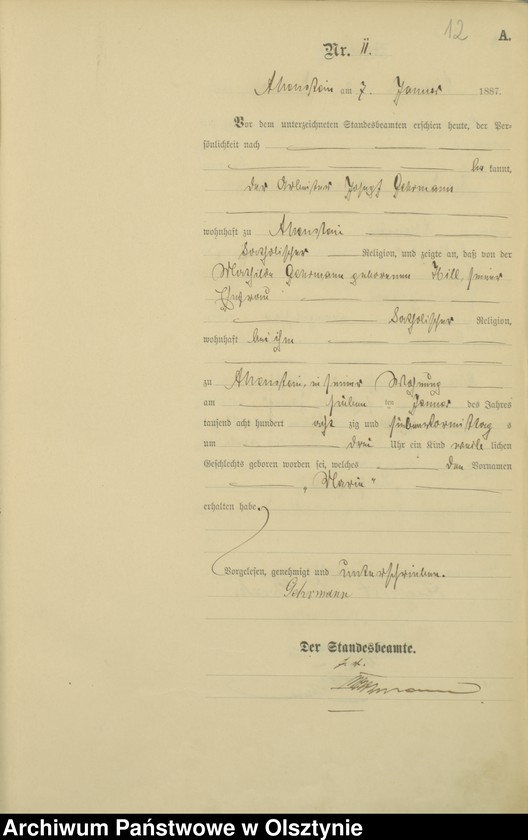 12 A.
Nr. 11.
Allenstein am 7. Januar 1887.
Vor dem unterzeichneten Standesbeamten erschien heute, der Per-
sönlichkeit nach
be kannt,
der Arbeiter Joseph Gehrmann
wohnhaft zu Allenstein
katholischer Religion, und zeigte an, daß von der
Mathilde Gehrmann geborenen Hill, seiner
Ehefrau
katholischer Religion,
wohnhaft bei ihm
zu Allenstein, in seiner Wohnung
am sieben ten Januar des Jahres
tausend acht hundert acht zig und sieben Vormittags
um drei Uhr ein Kind weib lichen
Geschlechts geboren worden sei, welches den Vornamen
„Marie“
erhalten habe.
Vorgelesen, genehmigt und unterschrieben.
Gehrmann
Der Standesbeamte.
Archiwum Państwowe w Olsztynie